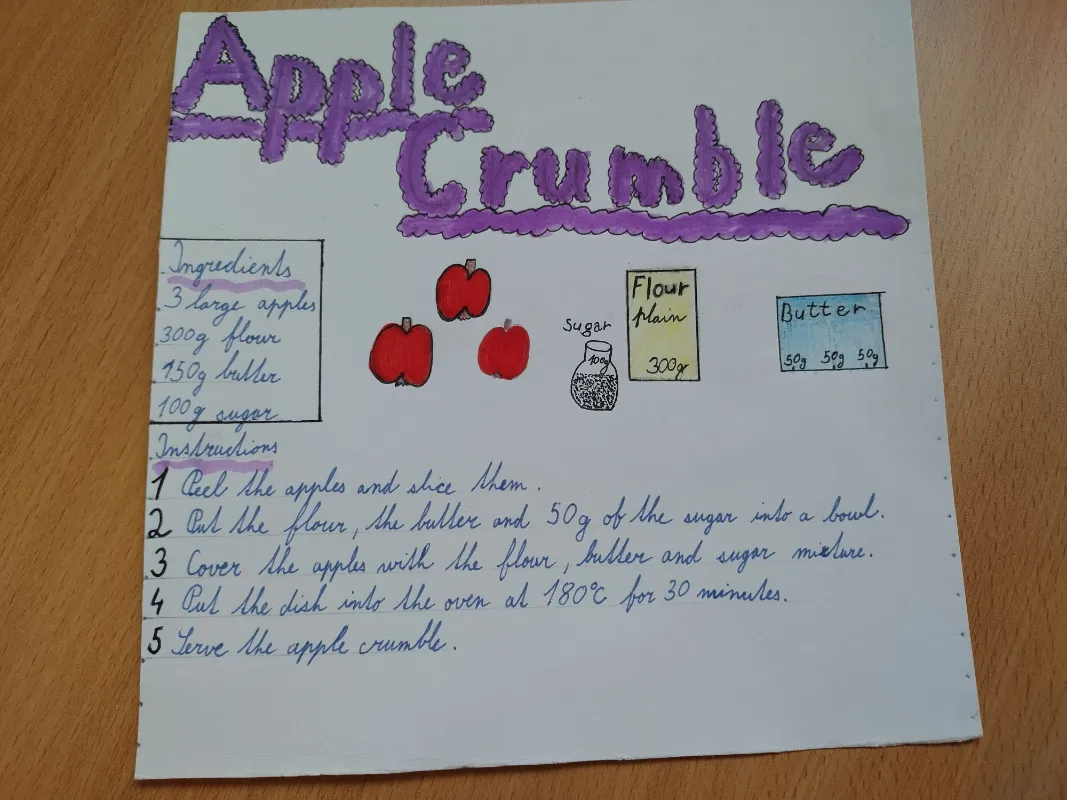 Apple
Crumble
Ingredients
3 large apples
300g flour
150g butter
100g sugar
Sugar
100g
Flour
plain
300g
Butter
50g 50g 50g
Instructions
1 Peel the apples and slice them.
2 Put the flour, the butter and 50g of the sugar into a bowl.
3 Cover the apples with the flour, butter and sugar mixture.
4 Put the dish into the oven at 180°C for 30 minutes.
5 Serve the apple crumble.